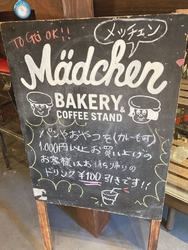 To Go OK!!
メッチェン
Mädchen
BAKERY &
COFFEE STAND
パンやおやつを(カレーもす)
1,000円以上お買い上げの
お客様はお持ち帰りの
ドリンク ¥100 引きです!!